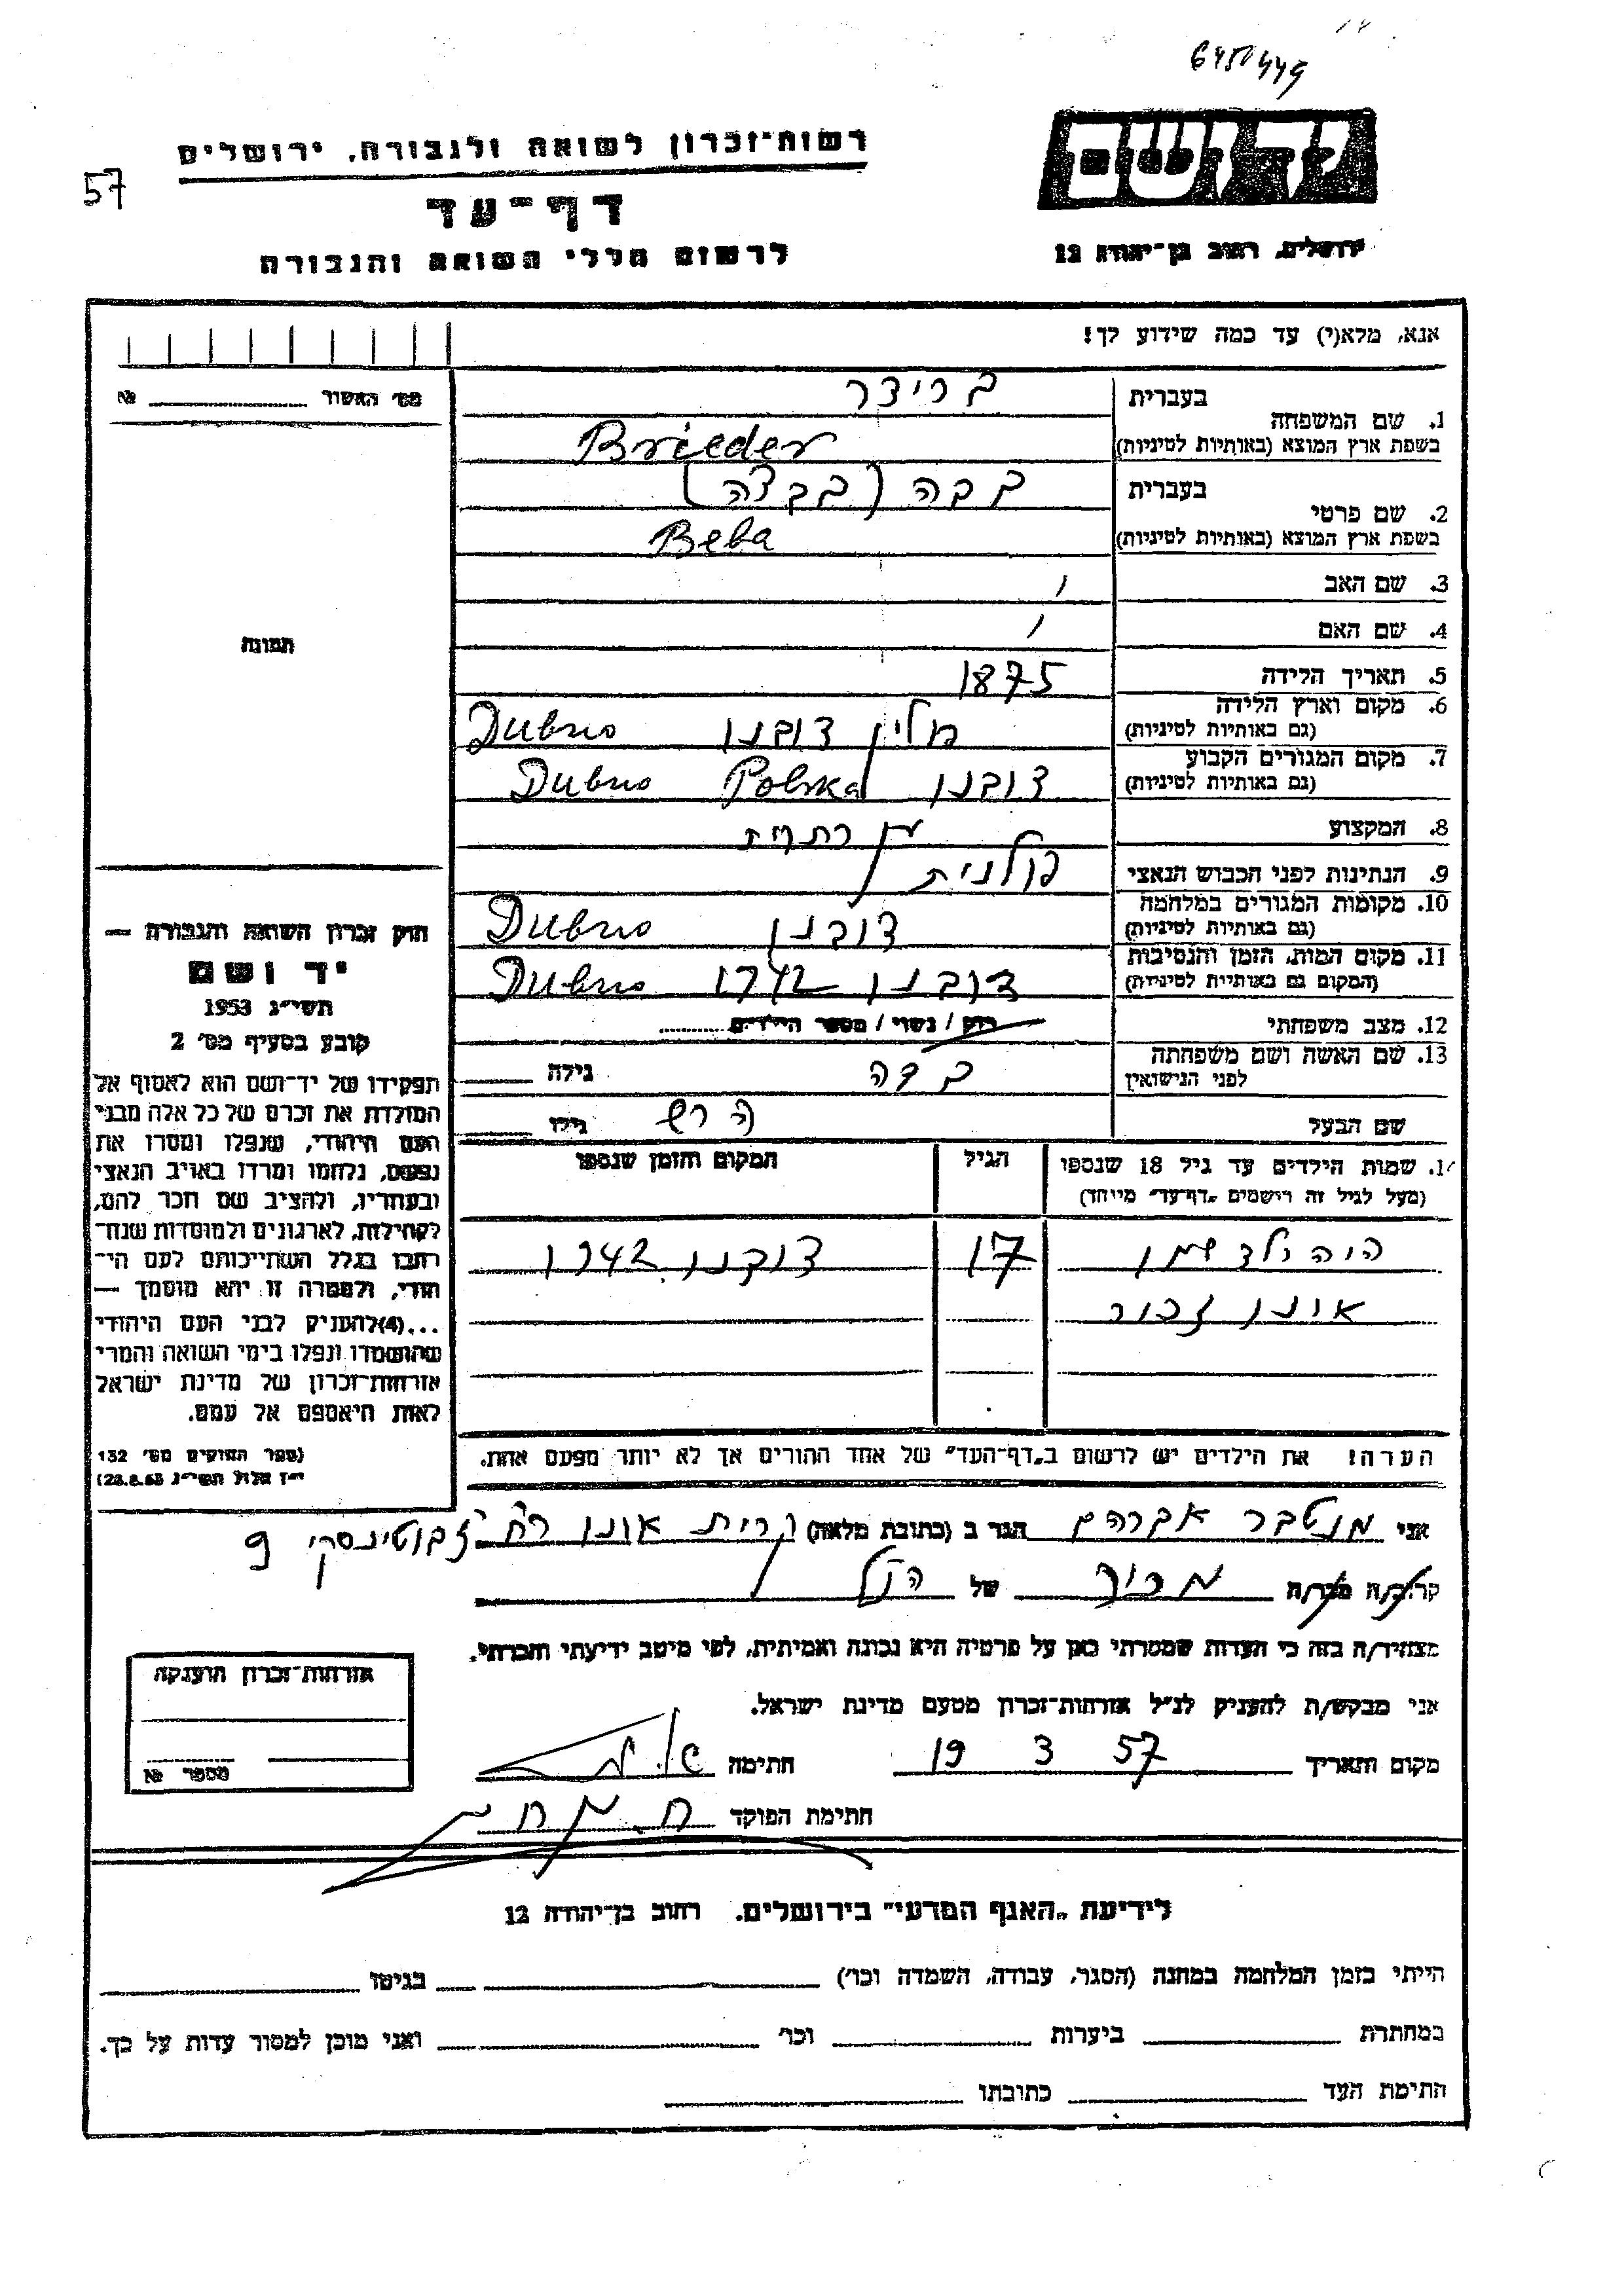 6451449
יד ושם
רשות־זכרון לשואה ולגבורה, ירושלים
57
דף־עד
ירושלים, רחוב בן־יהודה 12
לרשום חללי השואה והגבורה
אנא, מלא(י) עד כמה שידוע לך!
מס׳ האשור №
בעברית
ברידר
1. שם המשפחה
בשפת ארץ המוצא (באותיות לטיניות)
Brieder
בעברית
בבה (בבצה)
2. שם פרטי
בשפת ארץ המוצא (באותיות לטיניות)
Beba
3. שם האב
4. שם האם
תמונה
5. תאריך הלידה 1875
6. מקום וארץ הלידה
(גם באותיות לטיניות)
דובנו Dubno
7. מקום המגורים הקבוע
(גם באותיות לטיניות)
דובנו Polska Dubno
8. המקצוע
9. הנתינות לפני הכבוש הנאצי פולנית
10. מקומות המגורים במלחמה
(גם באותיות לטיניות)
דובנו Dubno
11. מקום המות, הזמן והנסיבות
(המקום גם באותיות לטיניות)
דובנו 1942 Dubno
12. מצב משפחתי רווק / נשוי / מספר הילדים
13. שם האשה ושם משפחתה
לפני הנישואין
גילה
שם הבעל הרש גילו
14. שמות הילדים עד גיל 18 שנספו
(מעל לגיל זה רישמים „דף־עד״ מייחד)
הגיל
המקום והזמן שנספו
היה ילד שמו 17 דובנו 1942
אינו זכור
הערה! את הילדים יש לרשום ב„דף־העד״ של אחד ההורים אך לא יותר מפעם אחת.
חוק זכרון השואה והגבורה —
יד ושם
תשי״ג 1953
קובע בסעיף מס׳ 2
תפקידו של יד־ושם הוא לאסוף אל
המולדת את זכרם של כל אלה מבני
העם היהודי, שנפלו ומסרו את
נפשם, נלחמו ומרדו באויב הנאצי
ובעוזריו, ולהציב שם וזכר להם,
לקהילות, לארגונים ולמוסדות שנח־
רבו בגלל השתייכותם לעם הי־
הודי, ולמטרה זו יהא מוסמך —
...(4)להעניק לבני העם היהודי
שהושמדו ונפלו בימי השואה והמרי
אזרחות־זכרון של מדינת ישראל
לאות היאספם אל עמם.
(ספר החוקים מס׳ 132
י״ז אלול תשי״ג 28.8.53)
אני מנטבר אברהם הגר ב (כתובת מלאה) קרית אונו רח׳ ז׳בוטינסקי 9
קרוב/ה מכר/ה מכיר של הנ״ל
מצהיר/ה בזה כי העדות שמסרתי כאן על פרטיה היא נכונה ואמיתית, לפי מיטב ידיעתי והכרתי.
אני מבקש/ת להעניק לנ״ל אזרחות־זכרון מטעם מדינת ישראל.
מקום ותאריך 19 3 57 חתימה
חתימת הפוקד
אזרחות־זכרון הוענקה
מספר №
לידיעת „האגף המדעי״ בירושלים. רחוב בן־יהודה 12
הייתי בזמן המלחמה במחנה (הסגר, עבודה, השמדה וכו׳) בגיטו
במחתרת ביערות וכו׳ ואני מוכן למסור עדות על כך.
חתימת העד כתובתו